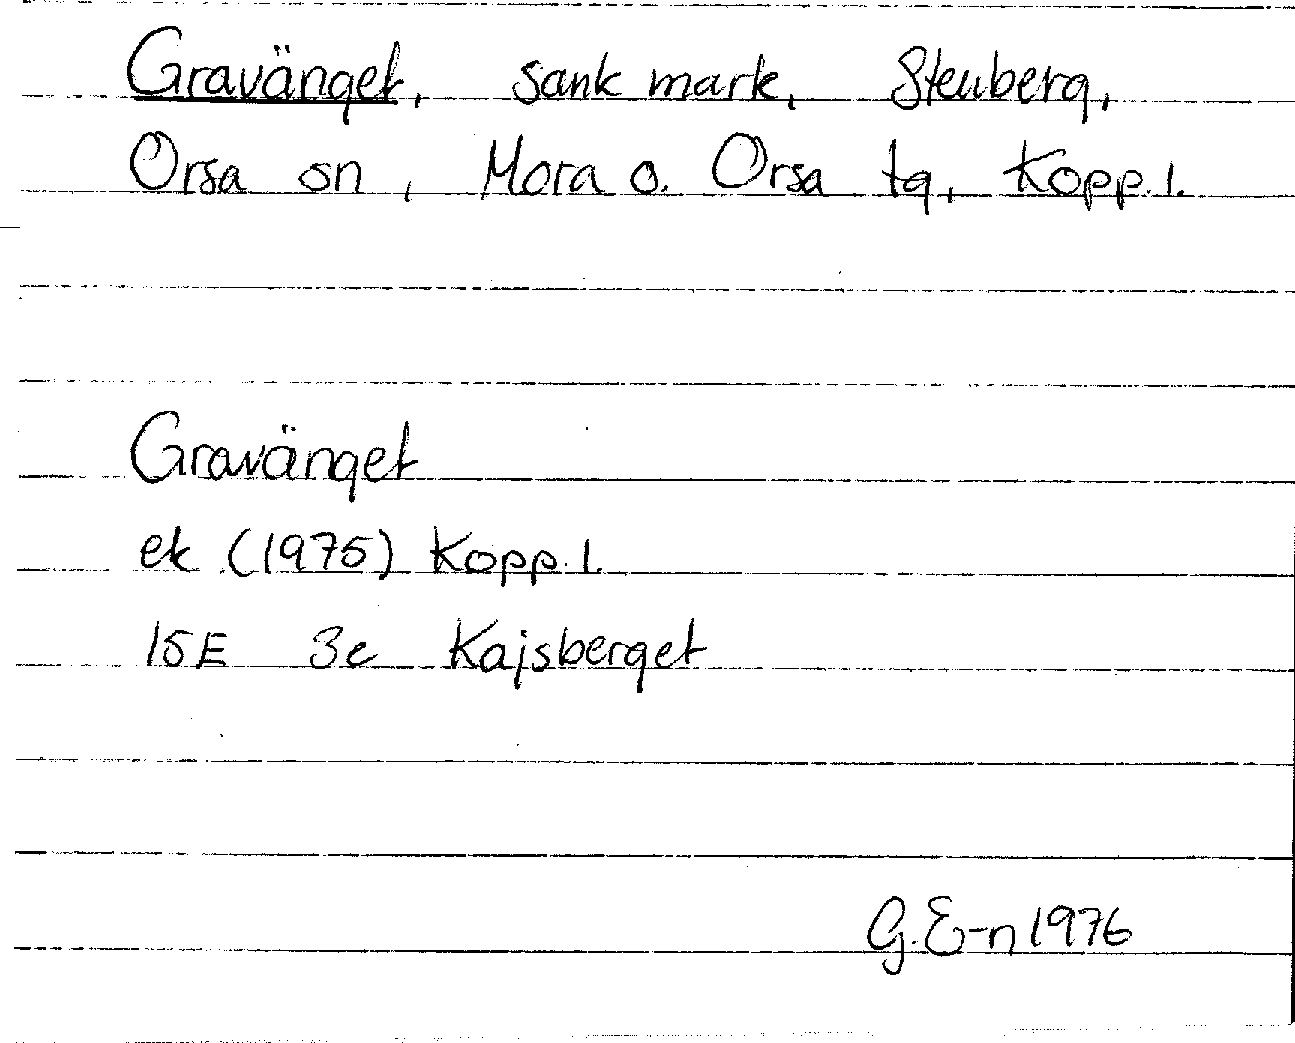 Gravänget, sank mark, Stenberg,
Orsa sn, Mora o. Orsa tg, Kopp. l.
Gravänget
ek (1975) Kopp. l.
15E 3e Kajsberget
G. E-n 1976